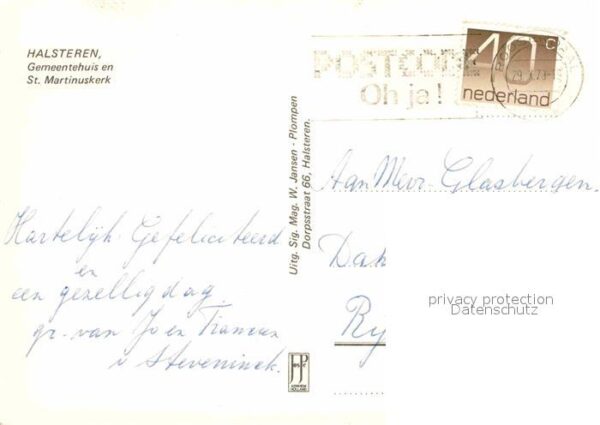 HALSTEREN,
Gemeentehuis en
St. Martinuskerk
POSTCODE
Oh ja!
40c
nederland
Uitg. Sig. Mag. W. Jansen - Plompen
Dorpsstraat 66, Halsteren.
Hartelijk Gefeliciteerd
en
een gezellig dag.
gr. van Jo en
v Steveninck.
Aan Mevr. Glasbergen.
Dak
Rij
privacy protection
Datenschutz